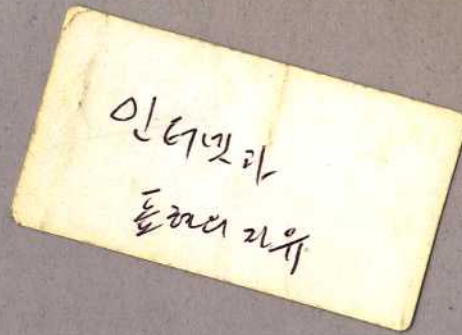 인터넷과
표현의 자유